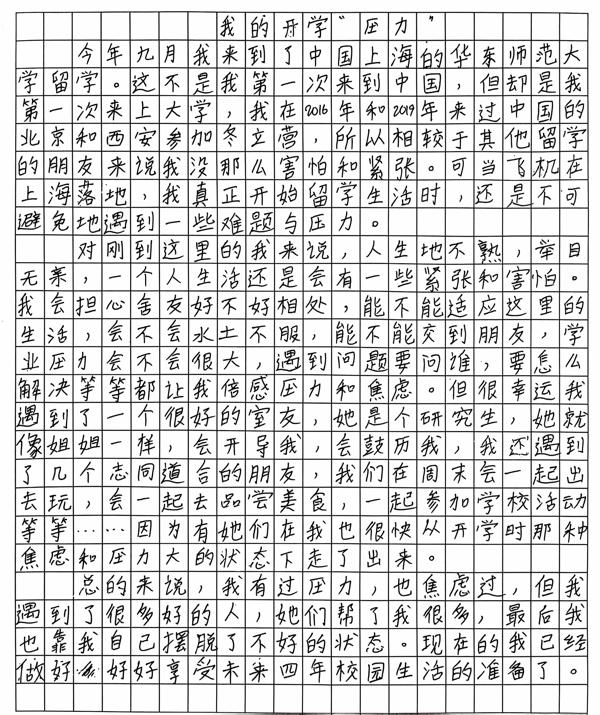 我的开学“压力”
今年九月我来到了中国上海的华东师范大
学留学。这不是我第一次来到中国，但却是我
第一次来上大学，我在2016年和2019年来过中国的
北京和西安参加冬立营，所以相较于其他留学
的朋友来说我没那么害怕和紧张。可当飞机在
上海落地，我真正开始留学生活时，还是不可
避免地遇到一些难题与压力。
对刚到这里的我来说，人生地不熟，举目
无亲，一个人生活还是会有一些紧张和害怕。
我会担心舍友好不好相处，能不能适应这里的
生活，会不会水土不服，能不能交到朋友，学
业压力会不会很大，遇到问题要问谁，要怎么
解决等等都让我倍感压力和焦虑。但很幸运我
遇到了一个很好的室友，她是个研究生，她就
像姐姐一样，会开导我，会鼓历我，我还遇到
了几个志同道合的朋友，我们在周末会一起出
去玩，会一起去品尝美食，一起参加学校活动
等等……因为有她们在我也很快从开学时那种
焦虑和压力大的状态下走了出来。
总的来说，我有过压力，也焦虑过，但我
遇到了很多好的人，她们帮了我很多，最后我
也靠我自己摆脱了不好的状态。现在的我已经
做好好好享受未来四年校园生活的准备了。